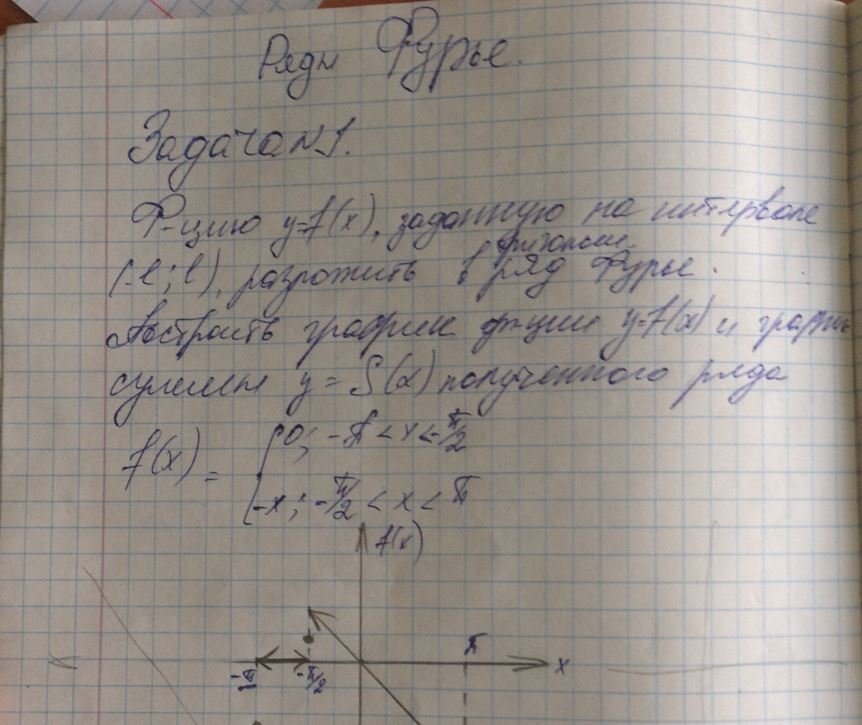 Ряды Фурье.
Задача №1.
Ф-цию y=f(x), заданную на интервале
(-l; l), разложить в ряд Фурье.
Построить график ф-ции y=f(x) и график
суммы y=S(x) полученного ряда
f(x) = { 0; -π < x < -π/2
-x; -π/2 < x < π
f(x)
π
-π -π/2 x